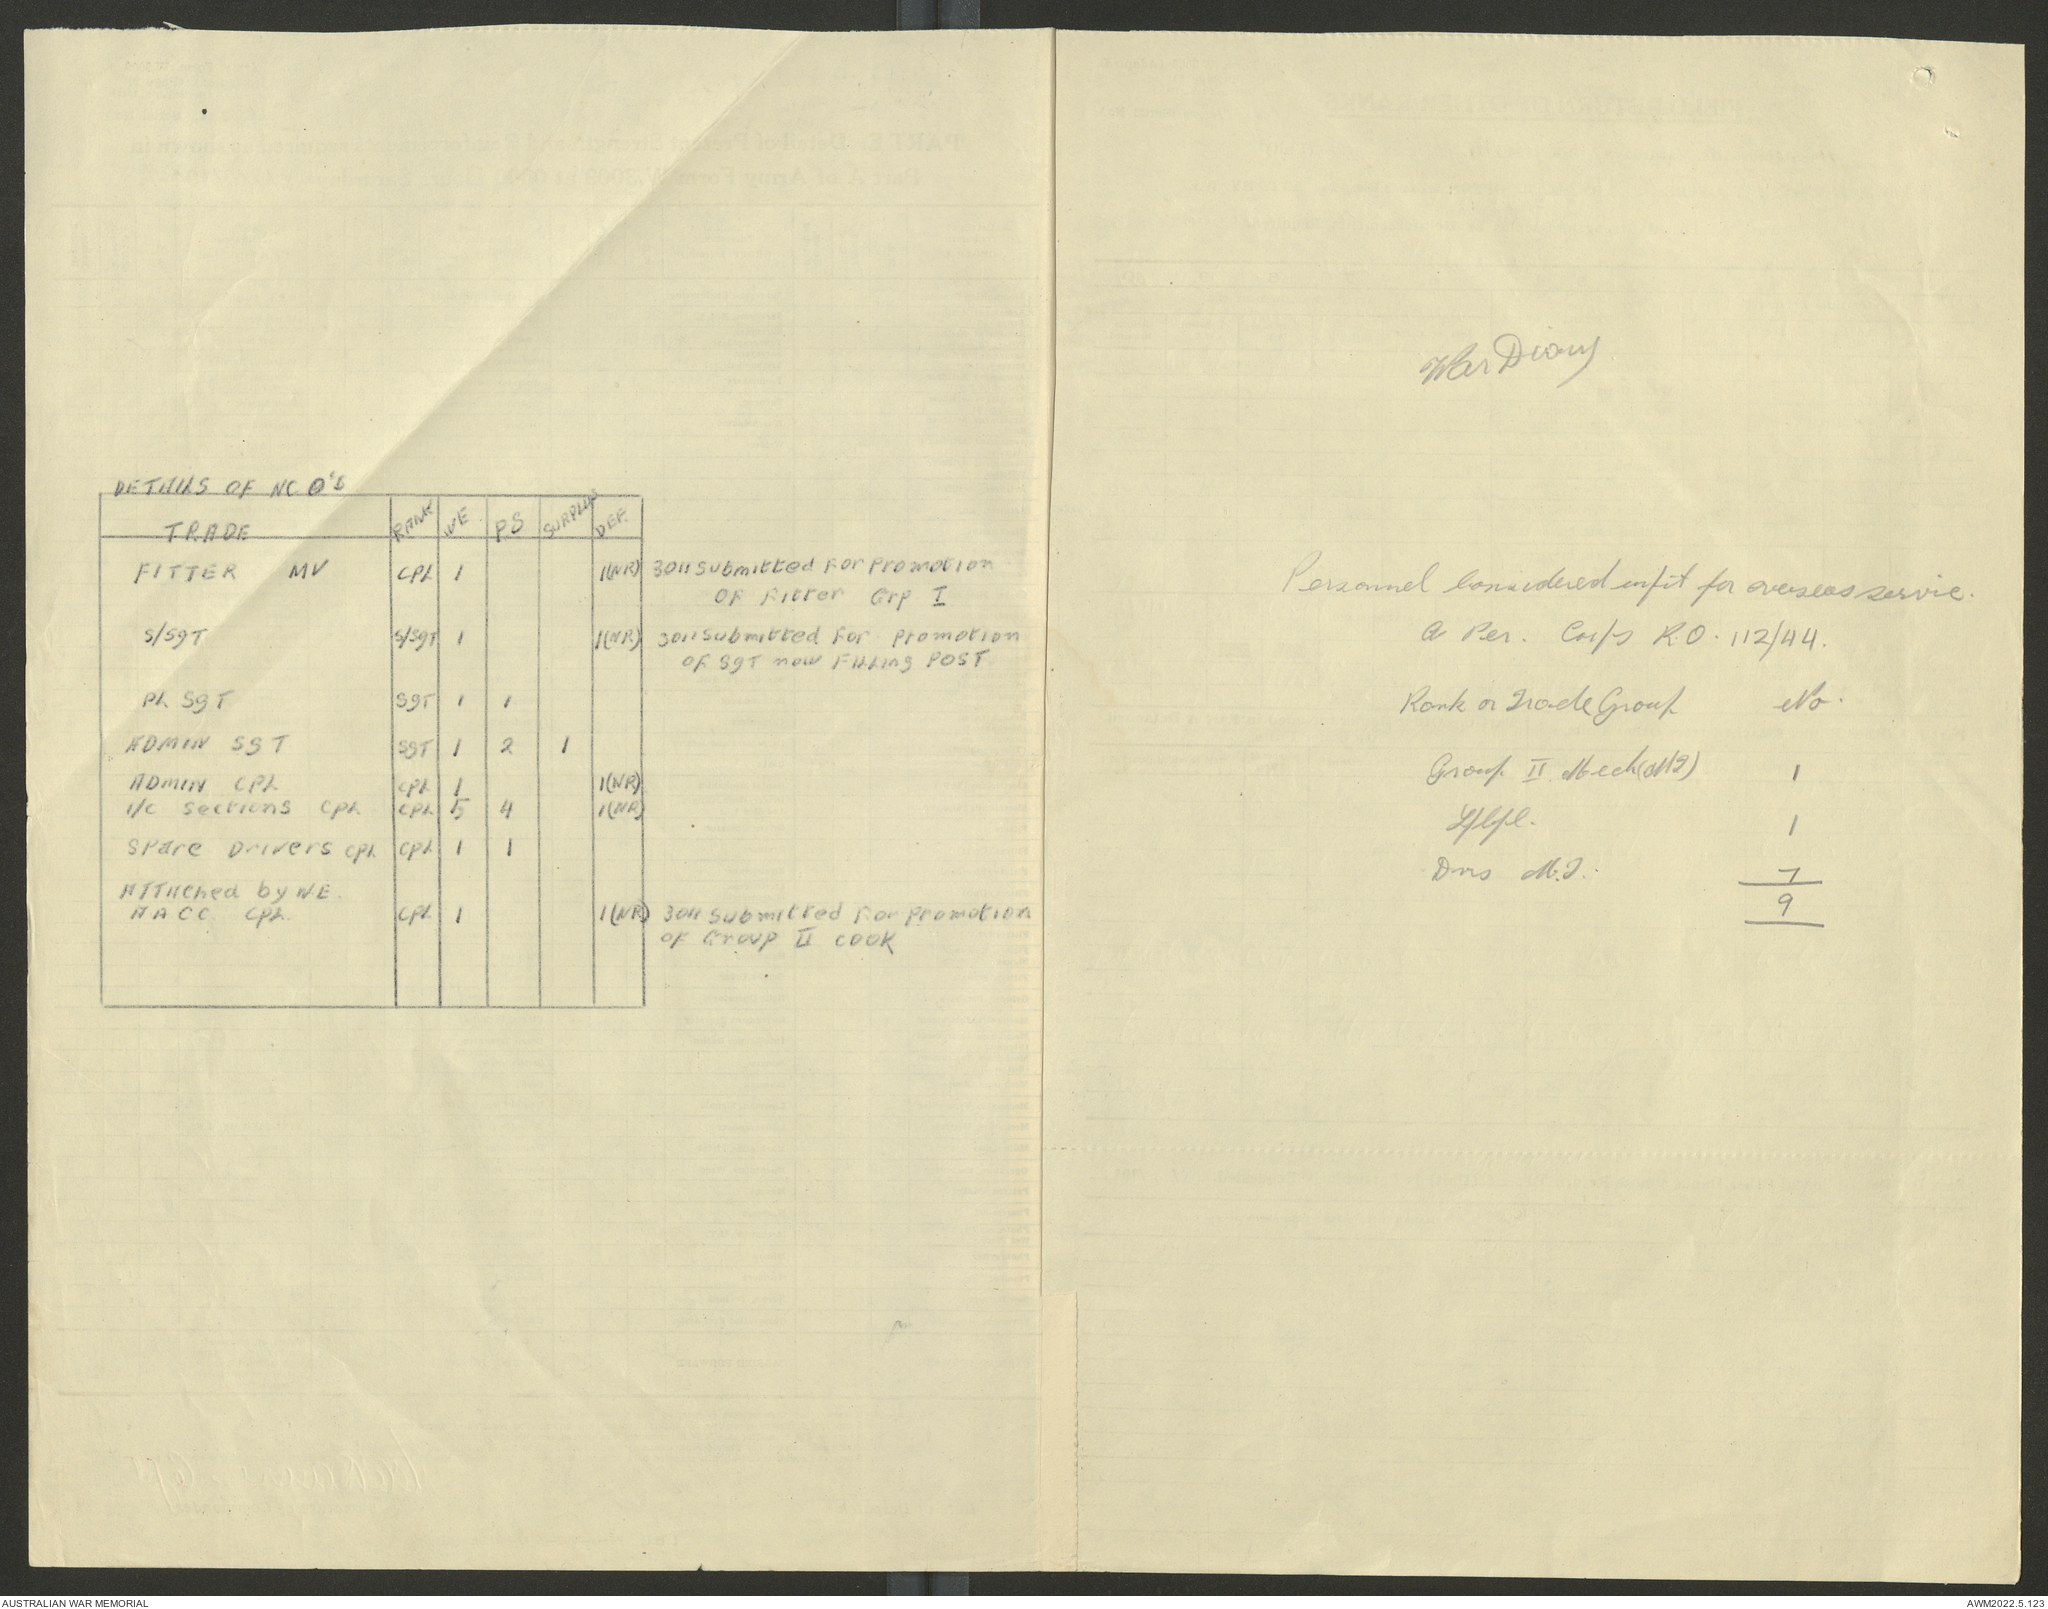 DETAILS OF NCO'S
TRADE RANK WE PS SURPLUS DEF.
FITTER MV CPL 1 1(NR) 3011 Submitted For Promotion
OF Fitter Grp I
S/SgT S/SgT 1 1(NR) 3011 Submitted For Promotion
OF SgT now Filling POST
PL SgT SgT 1 1
ADMIN SGT SGT 1 2 1
ADMIN CPL CPL 1 1(NR)
I/C Sections CPL CPL 5 4 1(NR)
Spare Drivers CPL CPL 1 1
Attached by W.E.
AACC CPL CPL 1 1(NR) 3011 Submitted For Promotion
OF Group II COOK
War Diary
Personnel Considered unfit for overseas servic.
a Per. Corps R.O. 112/44.
Rank or Trade Group No.
Group II Mech(MT) 1
1
Dvrs M.T. 7
9
AUSTRALIAN WAR MEMORIAL
AWM2022.5.123